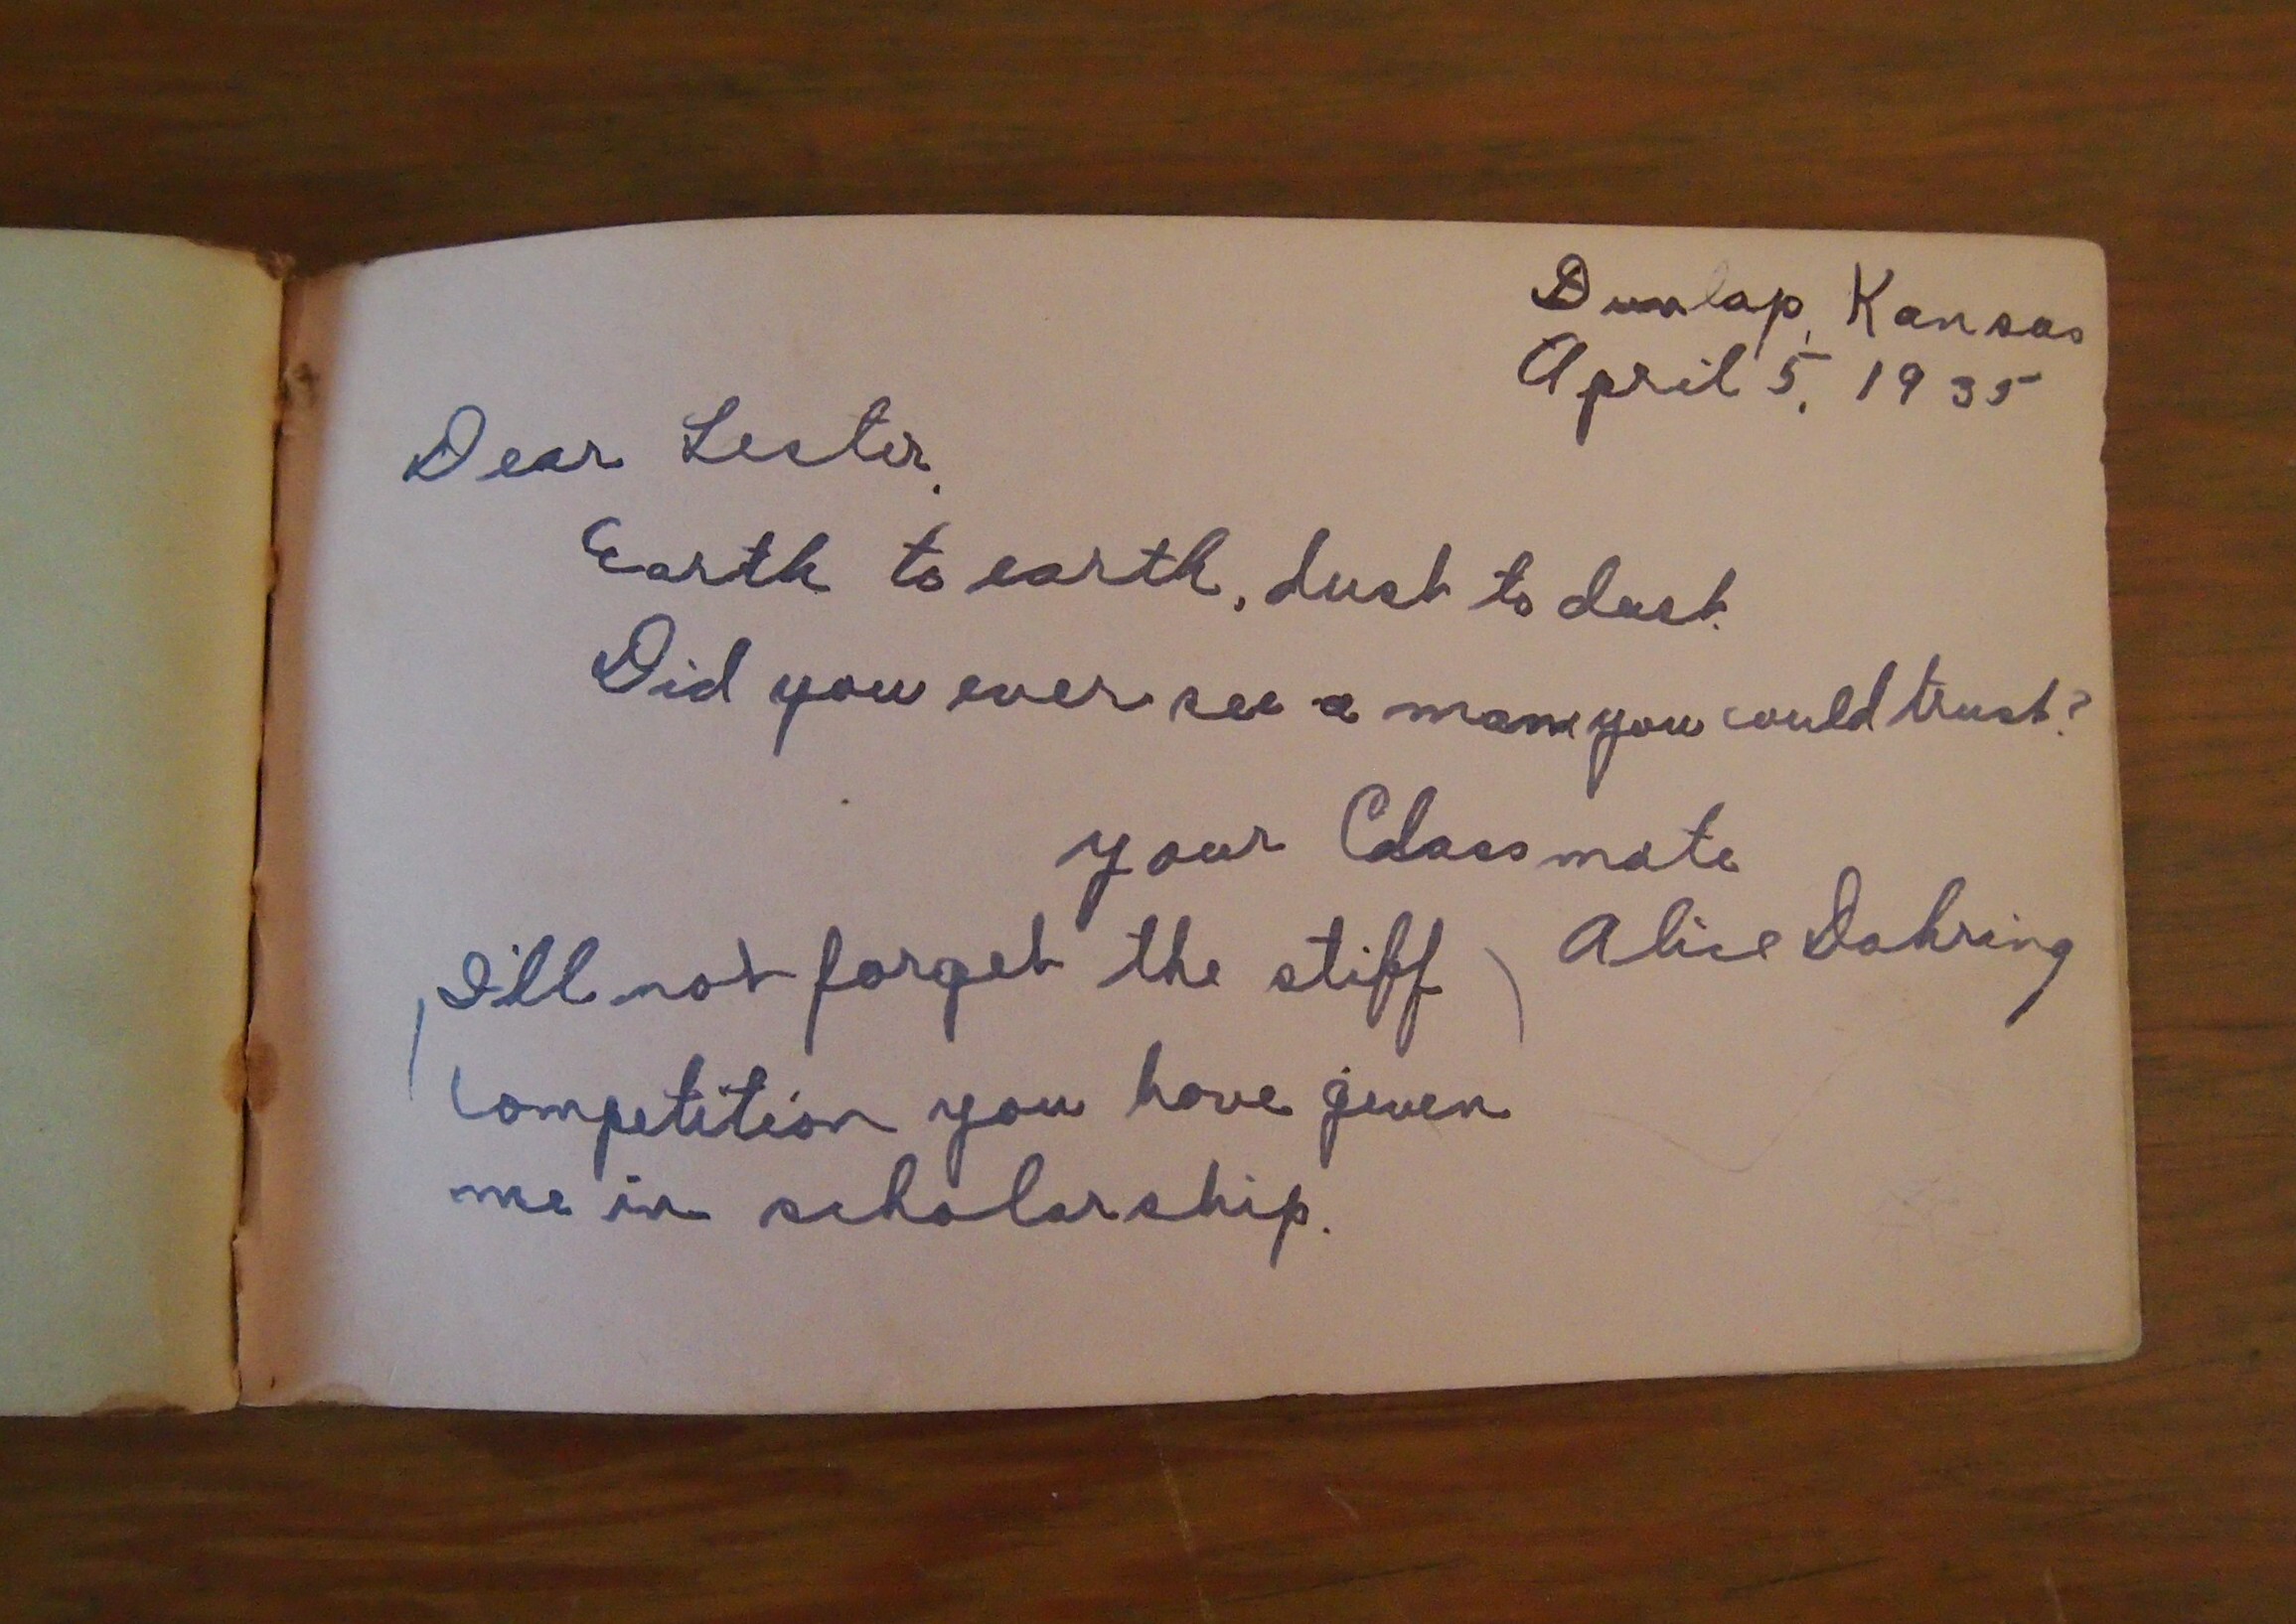 Dunlap, Kansas
April 5, 1935
Dear Lester,
Earth to earth, dust to dust.
Did you ever see a man you could trust?
your Classmate
Alice Dahring
(I'll not forget the stiff)
competition you have given
me in scholarship.